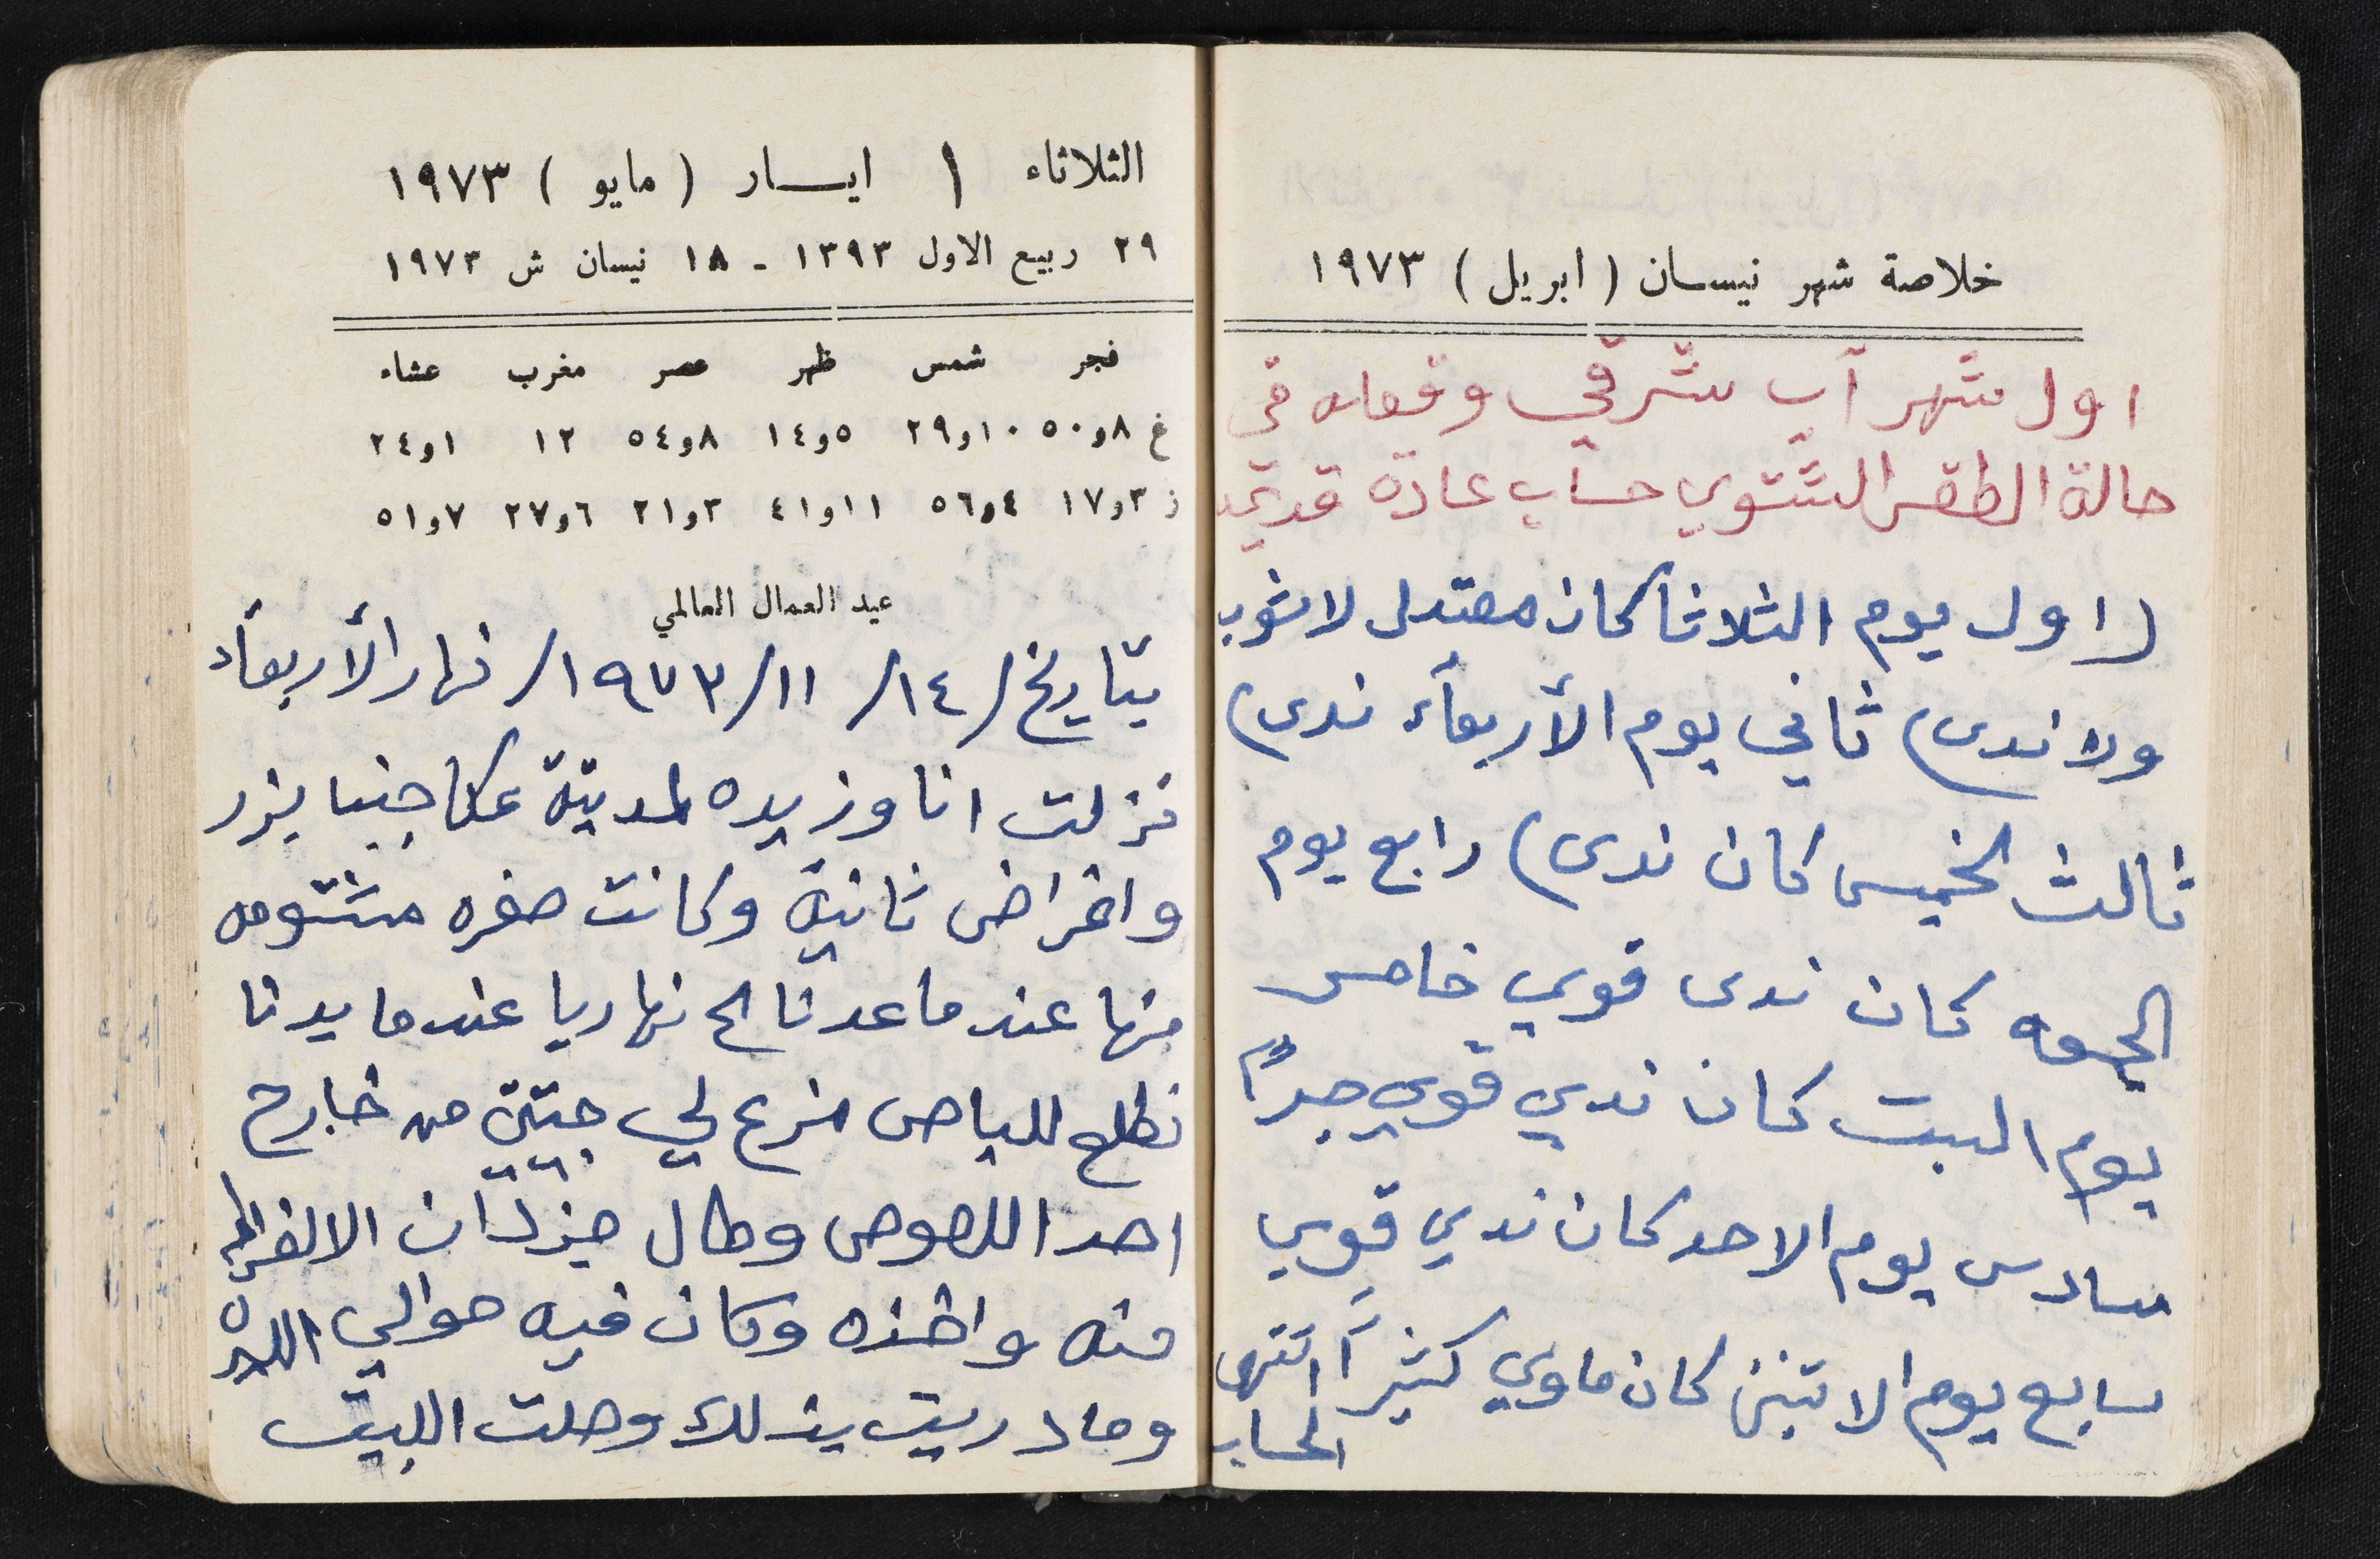 خلاصة شهر نيسان ( ابريل ) ١٩٧٣
اول شهر آب شرقي وقعاته في
حالة الطقس الشتوي حساب عادة قديمه
( اول يوم الثلاثا كان معتدل لا شوب
ولا ندى) ثاني يوم الأربعآء ندى)
ثالث الخميس كان ندى) رابع يوم
الجمعه كان ندى قوي خامس
يوم السبت كان ندي قوي جداً
سادس يوم الاحد كان ندي قوي
سابع يوم الاتنين كان ماوي كثيراً انتهى
الحساب
الثلاثاء ١ ايسار ( مايو ) ١٩٧٣
٢٩ ربيع الاول ١٣٩٣ - ١٨ نيسان ش ١٩٧٣
فجر شمس ظهر عصر مغرب عشاء
غ ٨و٥٠ ١٠و٢٩ ٥و١٤ ٨و٥٤ ١٢ ١و٢٤
ز ٣و١٧ ٤و٥٦ ١١و٤١ ٣و٢١ ٦و٢٧ ٧و٥١
عيد العمال العالمي
بتاريخ /١٤/ ١١/ ١٩٧٣/ نهار الأربعآء
نزلت انا وزيده لمدينة عكا جبنا بزر
واغراض ثانية وكانت صفره مشئومه
منها عندما عدنا الى نهاريا عندما بدنا
نطلع للباص مزع لي جيبتي من خارج
احد اللصوص وطال جزدان
منه واخذه وكان فيه حوالي
وما دريت بذلك وصلت البيت